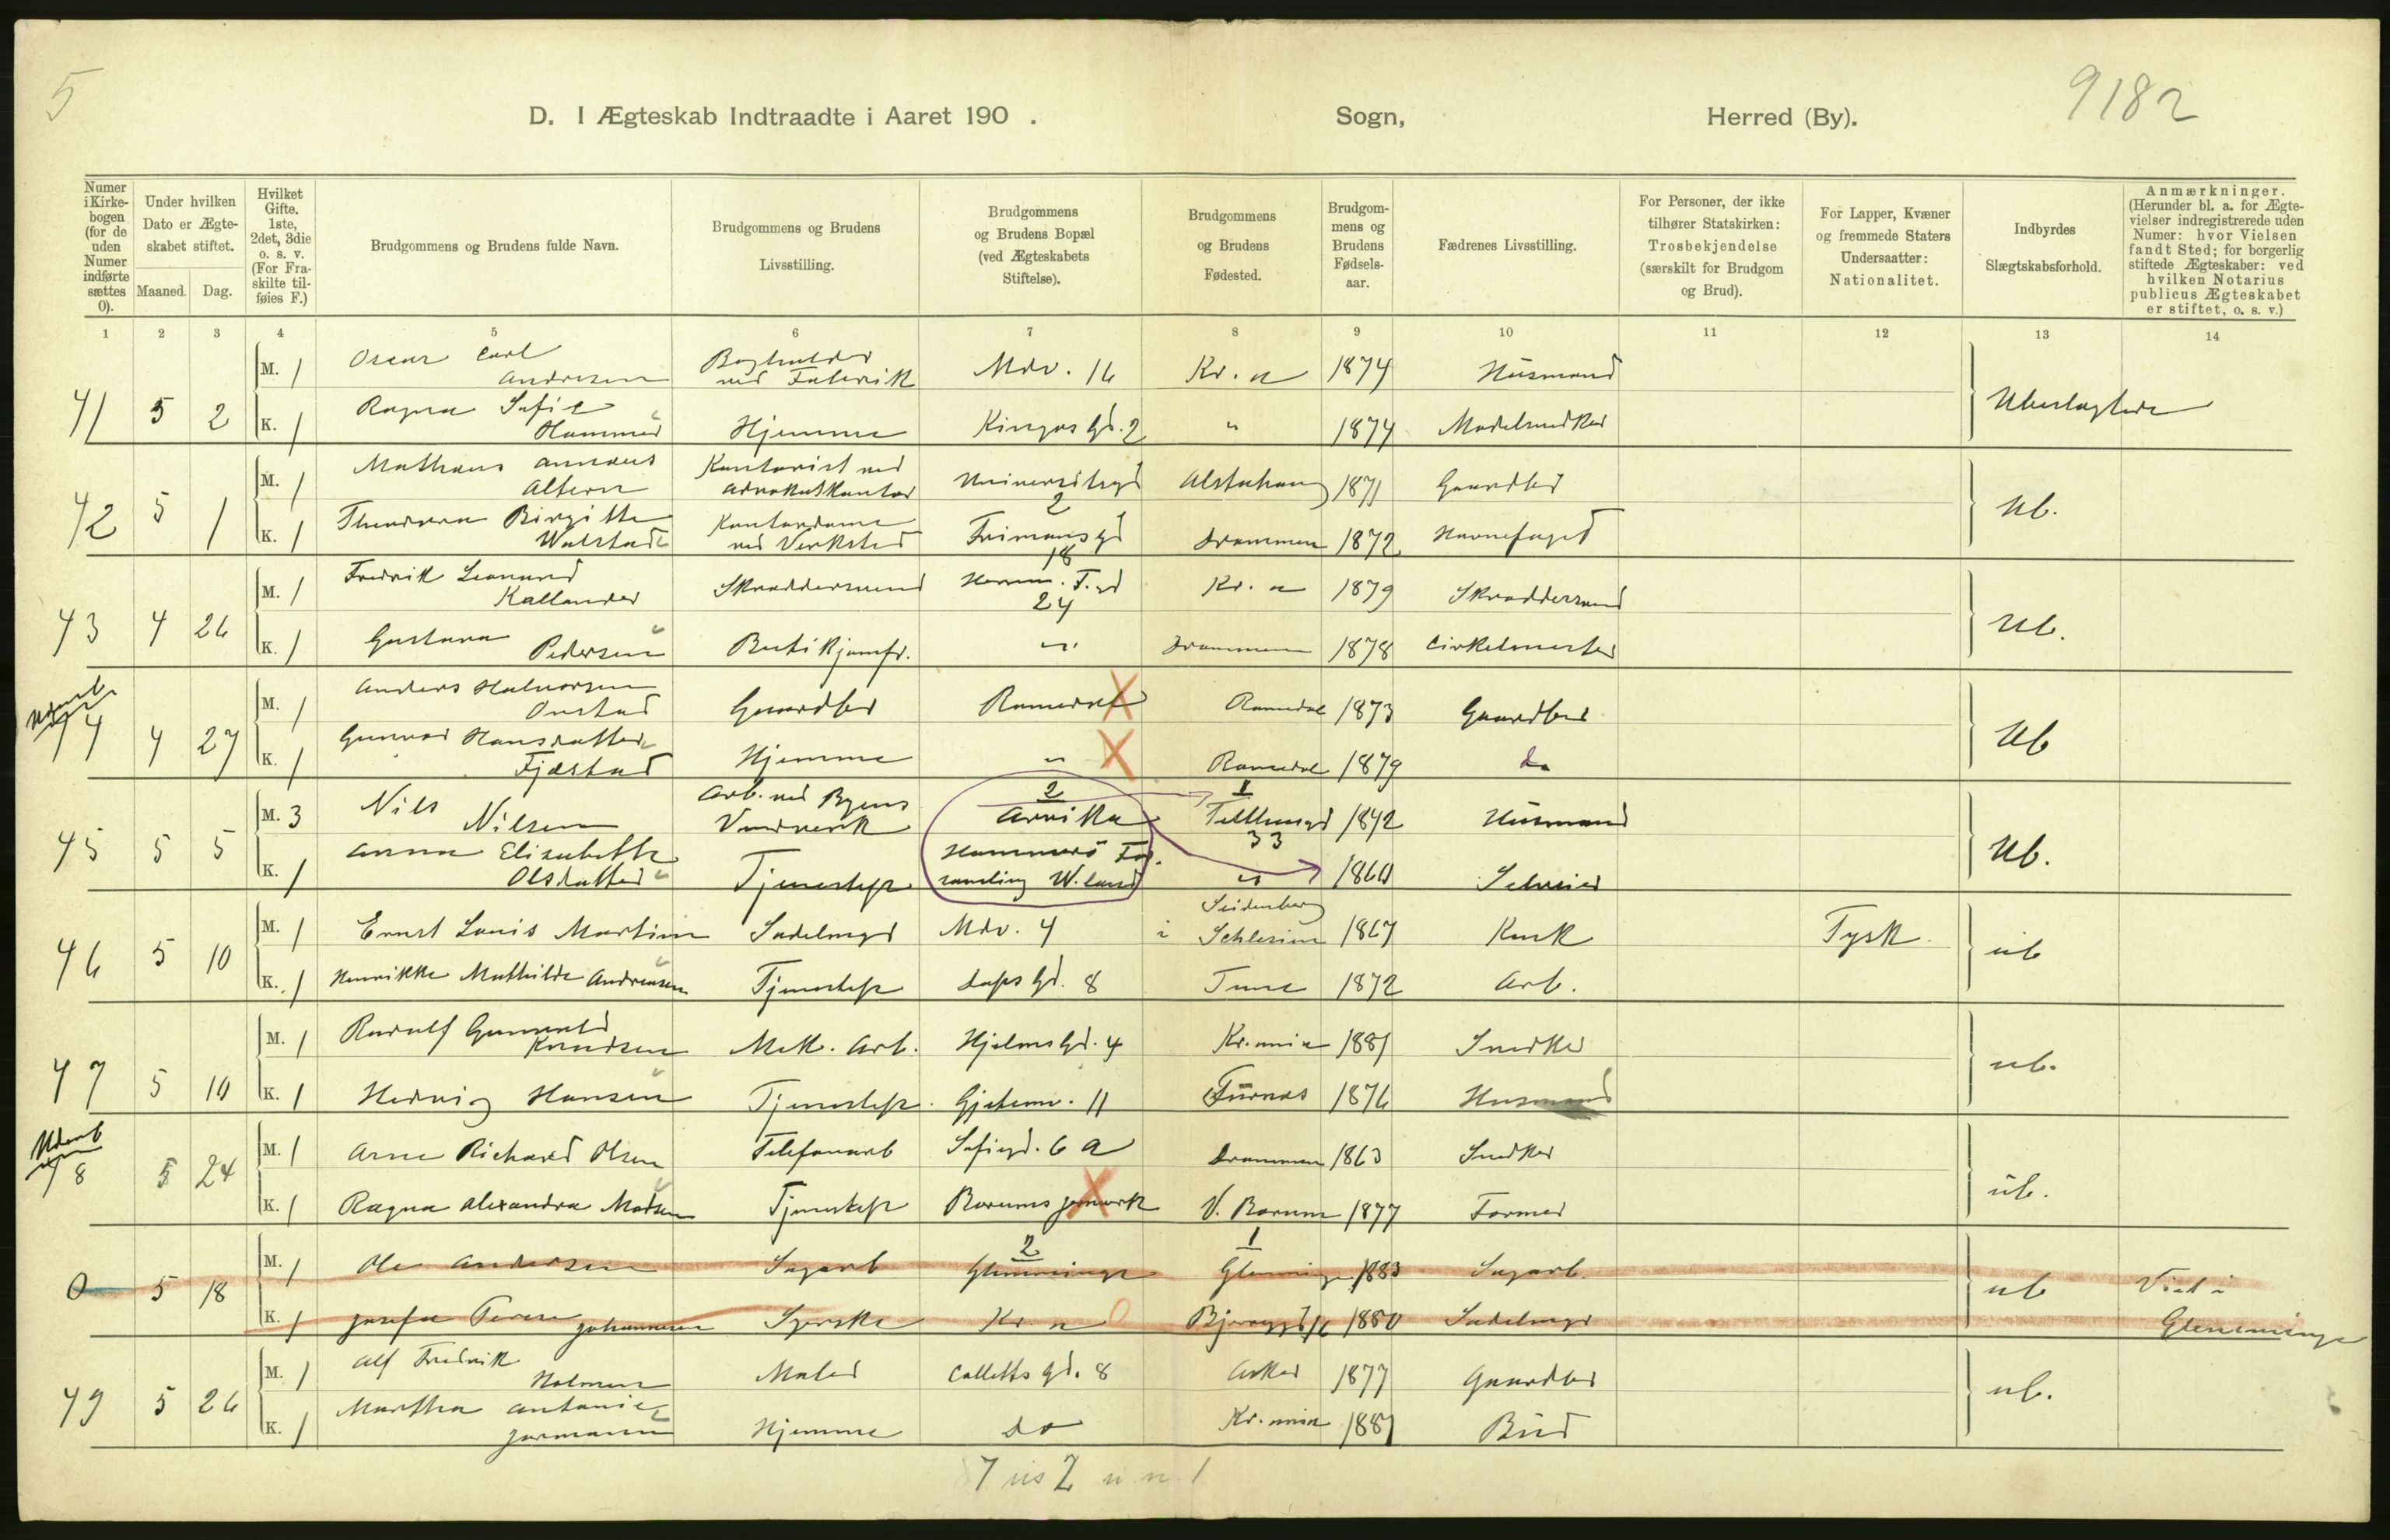 5
9182
D. I Ægteskab Indtraadte i Aaret 190 . Sogn, Herred (By).
Numer i Kirke-bogen (for de uden Numer indførte sættes 0).
Under hvilken Dato er Ægte-skabet stiftet.
Maaned. Dag.
Hvilket Gifte. 1ste, 2det, 3die o. s. v. (For Fra-skilte til-føies F.)
Brudgommens og Brudens fulde Navn.
Brudgommens og Brudens Livsstilling.
Brudgommens og Brudens Bopæl (ved Ægteskabets Stiftelse).
Brudgommens og Brudens Fødested.
Brudgom-mens og Brudens Fødsels-aar.
Fædrenes Livsstilling.
For Personer, der ikke tilhører Statskirken: Trosbekjendelse (særskilt for Brudgom og Brud).
For Lapper, Kvæner og fremmede Staters Undersaatter: Nationalitet.
Indbyrdes Slægtskabsforhold.
Anmærkninger. (Herunder bl. a. for Ægte-vielser indregistrerede uden Numer: hvor Vielsen fandt Sted; for borgerlig stiftede Ægteskaber: ved hvilken Notarius publicus Ægteskabet er stiftet, o. s. v.)
1 2 3 4 5 6 7 8 9 10 11 12 13 14
M. 1 Oscar Carl Andresen Boghulder ved Fabrik Mdv. 16 Kr. a 1874 Husmand
41 5 2 K. 1 Ragna Sofie Hammer Hjemme Kingos Gd. 2 " 1874 Modelsnedker Ubeslagtede
M. 1 Mathæus Annæus Altern Kontorist ved Advokatkontor Universitsgd 2 Alstahaug 1871 Gaardbr
42 5 1 K. 1 Theodora Birgitte Walstad Kontordame ved Verksted Frimansgd 18 Drammen 1872 Havnefoged Ub.
M. 1 Fredrik Leonard Kallander Skræddersvend Herm. F. gd 24 Kr. a 1879 Skræddersvend
43 4 26 K. 1 Gustava Pedersen Butikjomfr. " Drammen 1878 Cirkelmester Ub.
M. 1 Anders Halvorsen Onstad Gaardbr Romedal Romedal 1873 Gaardbr
44 4 27 K. 1 Gunvor Hansdatter Fjæstad Hjemme " Romedal 1879 do Ub
M. 3 Nils Nilsen Arb. ved Byens Vandverk 2 Arvika 1 Telthusgd 33 1842 Husmand
45 5 5 K. 1 Anna Elisabeth Olsdatter Tjenestepr Hammarö Forsamling W.land " 1860 Ub.
M. 1 Ernst Louis Martin Sadelmgr Mdv. 4 Seidenberg i Schlesien 1867 Kusk Tysk
46 5 10 K. 1 Henrikke Mathilde Andreasen Tjenestepr Gd. 8 Tune 1872 Arb. ub
M. 1 Rudolf Gunvald Knudsen Mek. Arb. Hjelms Gd. 4 Kr.ania 1881 Snedker
47 5 10 K. 1 Hedvig Hansen Tjenestepr. Gjetemv. 11 Furnæs 1876 Husmand ub.
M. 1 Arne Richard Olsen Telefonarb Sofiegd. 6 a Drammen 1863 Snedker
Udenb
48 5 24 K. 1 Ragna Alexandra Madsen Tjenestepr Bærums Jernverk V. Bærum 1877 Former ub.
M. 1 Ole Andersen Sagarb 2 Glemminge 1 Glemminge 1883 Sagarb.
0 5 18 K. 1 Josefa Terese Johannesen Syerske Kr. a 1880 Sadelmgr ub Viet i Glemminge
M. 1 Alf Fredrik Holmen Maler Colletts Gd. 8 Asker 1877 Gaardbr
49 5 26 K. 1 Martha Antonie Jormann Hjemme do Kr.ania 1881 Bud ub.